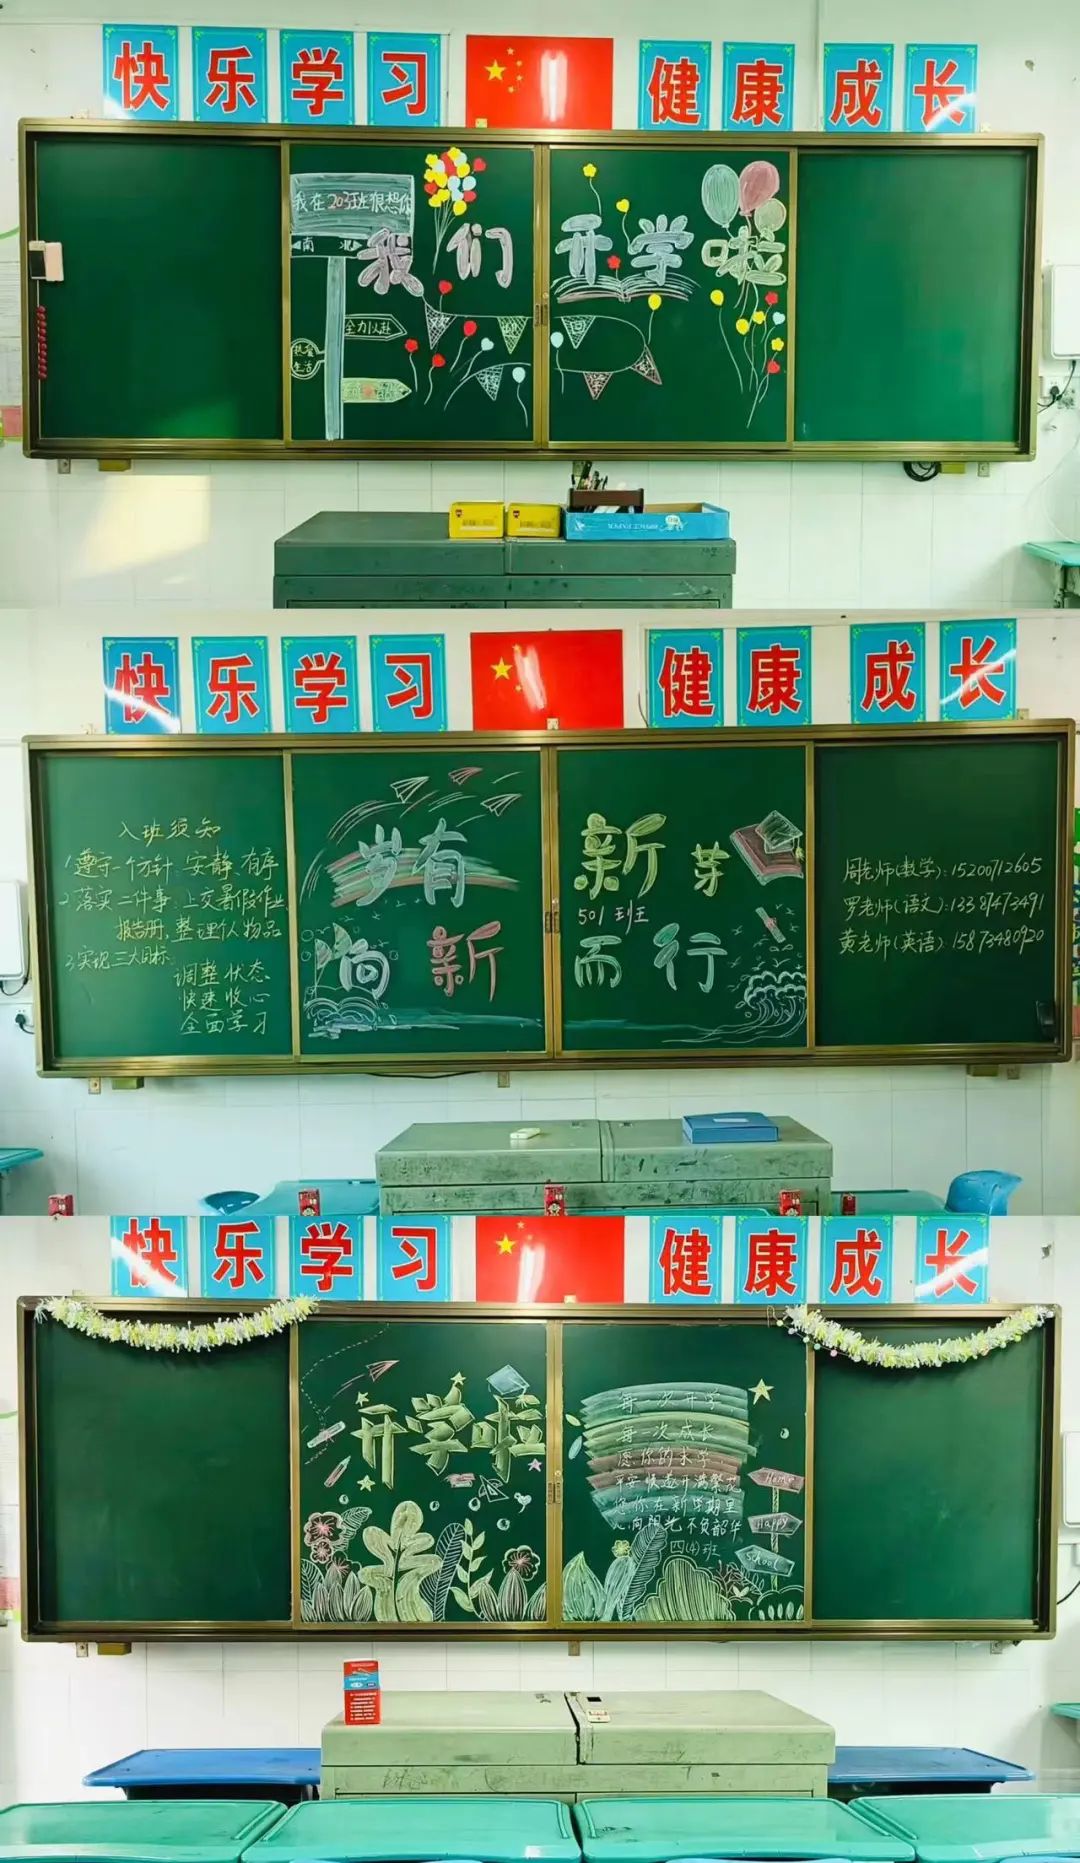 快乐学习 健康成长
我在203班很想你
南 北
我们开学啦
全力以赴
热爱生活
欢迎回
快乐学习 健康成长
入班须知
1 遵守一个方针:安静、有序
2 落实二件事:上交暑假作业、
报告册,整理个人物品
3 实现三大目标:
调整状态
快速收心
全面学习
岁有 新芽
501班
向新 而行
周老师(数学):15200712605
罗老师(语文):13387473491
黄老师(英语):15873480920
快乐学习 健康成长
开学啦
每一次开学
每一次成长
愿你的求学
平安快递开满繁花
愿你在新学期里
心向阳光不负韶华
四(4)班
Home
Happy
School